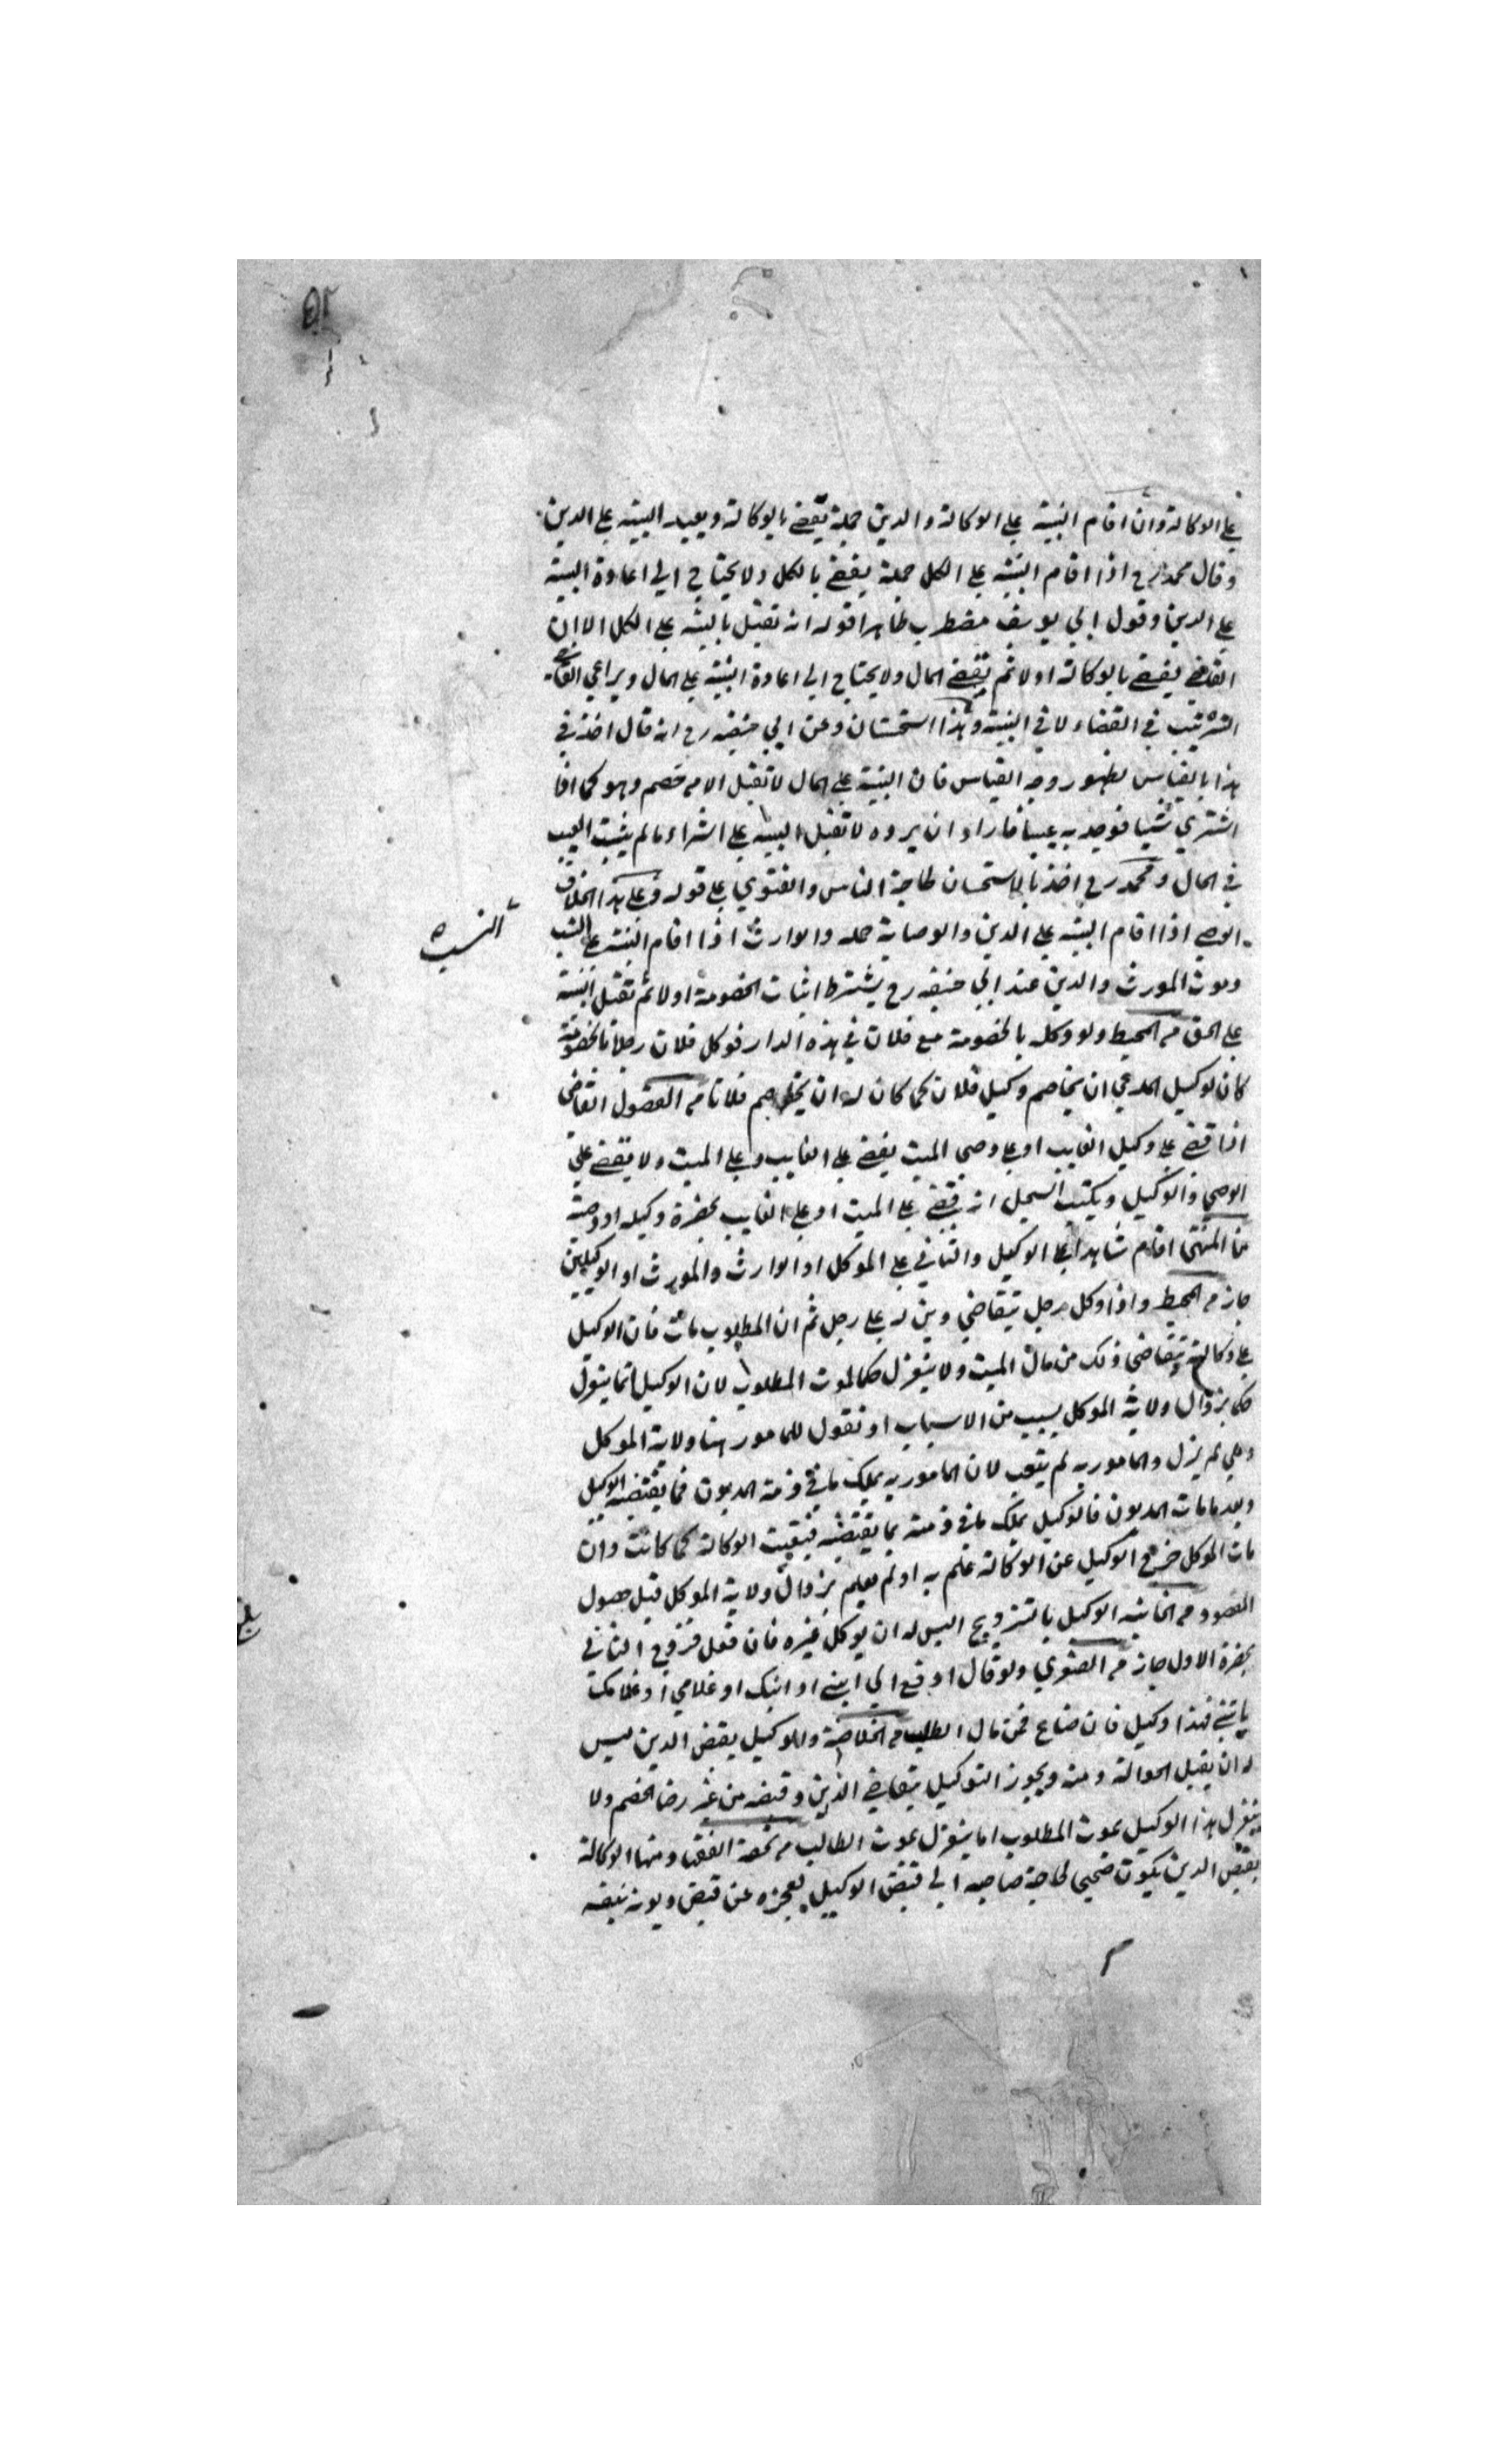 على الوكالة وان اقام البينة على الوكالة والدين جملة يقضے بالوكالة ويعيد البينة على الدين
وقال محمد رح اذا اقام البينة على الكل جملة يقضے بالكل ولا يحتاج الي اعادة البينة
على الدين وقول ابي يوسف مضطرب ظاهر اقوله انه تقبل بالبينة على الكل الا ان
القاضے يقضے بالوكالة اولا ثم يقضے المال ولا يحتاج الي اعادة البينة على المال ويراعي القاضے
الترتيب في القضاء لا في البينة وهذا استحسان وعن ابي حنيفه رح انه قال اخذ في
هذا بالقياس لظهور وجه القياس فان البينة على المال لا تقبل الا من خصم وهو كما اذا
اشتري شيا فوجد به عيبا فاراد ان يرده لا تقبل البينة على الشراء ما لم يثبت العيب
في الحال ومحمد رح اخذ بالاستحسان لحاجة الناس والفتوي على قوله وعلى هذا الخلاف
الوصي اذا اقام البينة على الدين والوصاية جمله والوارث اذا اقام البينة على النسب
النسب
وموت المورث والدين عند ابي حنيفه رح يشترط اثبات الخصومة اولا ثم تقبل البينة
على الحق من المحيط ولو وكله بالخصومة مع فلان في هذه الدار فوكل فلان رجلا بالخصومة
كان لوكيل المدعي ان يخاصم وكيل فلان كما كان له ان يخاصم فلانا من الفصول القاضي
اذا قضے على وكيل الغايب او على وصي الميت يقضے على الغايب وعلى الميت ولا يقضے على
الوصي والوكيل ويكتب السجل انه قضے على الميت او على الغايب بحضرة وكيله او وصيه
من المنتقى اقام شاهدا على الوكيل والثاني على الموكل او الوارث والمورث او الوكيلين
جاز من المحيط واذا وكل رجل بتقاضي دين له على رجل ثم ان المطلوب مات فان الوكيل
على وكالته بتقاضي ذلك من مال الميت ولا ينعزل حكما لموت المطلوب لان الوكيل انما ينعزل
حكما بزوال ولاية الموكل بسبب من الاسباب او نقول للمامور هنا ولاية الموكل
وهي لم يزل والمامور به لم يتعب لان المامور به يملك ما في ذمة المديون فما يقتضيه الوكيل
وبعد ما مات المديون فالوكيل يملك ما في ذمته بما يقتضيه فبقيت الوكالة كما كانت وان
مات الموكل خرج الوكيل عن الوكالة علم به او لم يعلم بزوال ولاية الموكل قبل حصول
المقصود من الخانيه الوكيل بالتزويج اليس له ان يوكل غيره فان فعل فزوج الثاني
بحضرة الاول جاز من الصغري ولو قال ادفع الي ابنے او ابنك او غلامي او غلامك
ياتنے فهذا وكيل فان ضاع فمن مال الطالب من الخلاصة وللوكيل بقبض الدين ليس
له ان يقبل الحوالة ومنه ويجوز التوكيل بتقاضے الدين وقبضه من غير رضا الخصم ولا
ينعزل هذا الوكيل بموت المطلوب انما ينعزل بموت الطالب من تحفة الفقها ومنها الوكالة
بقبض الدين يكون صحيح لحاجة صاحبه الي قبض الوكيل لعجزه عن قبض ديونه بنفسه